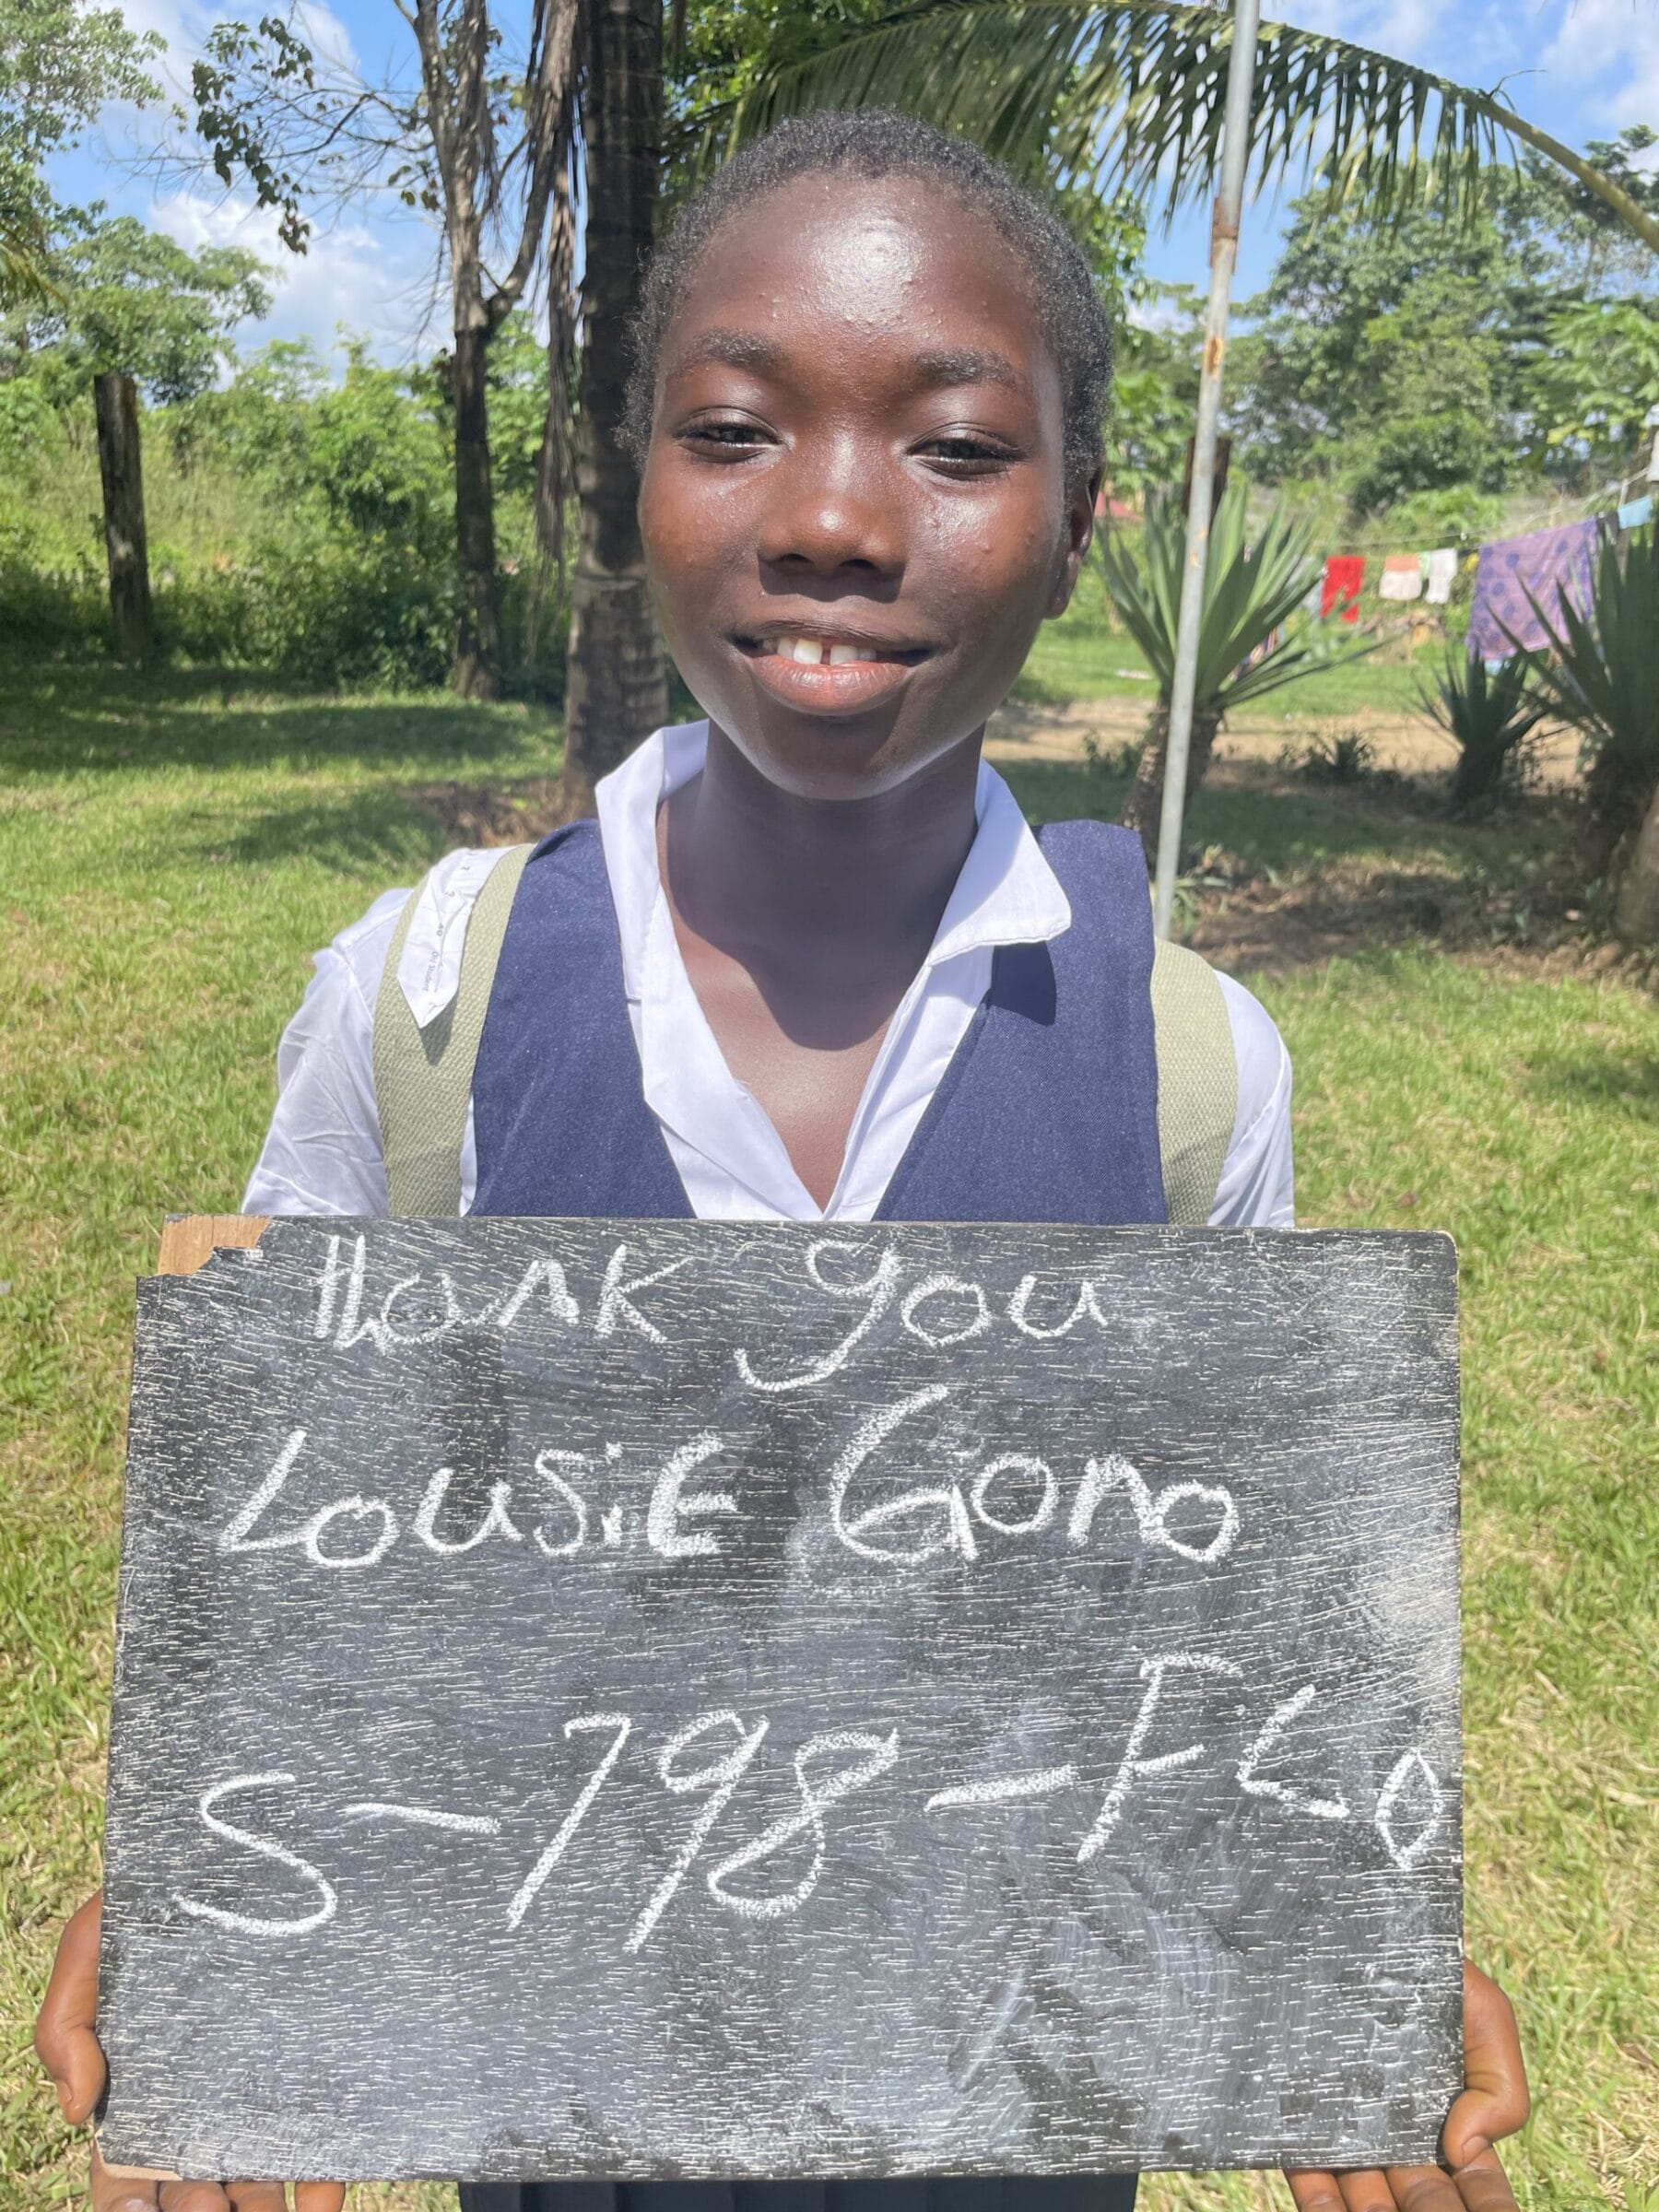 Thank you
Lousie Gono
S-798-FLO